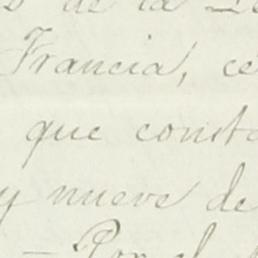 de la
Francia, ce
que consta
y nueve de
— Por el